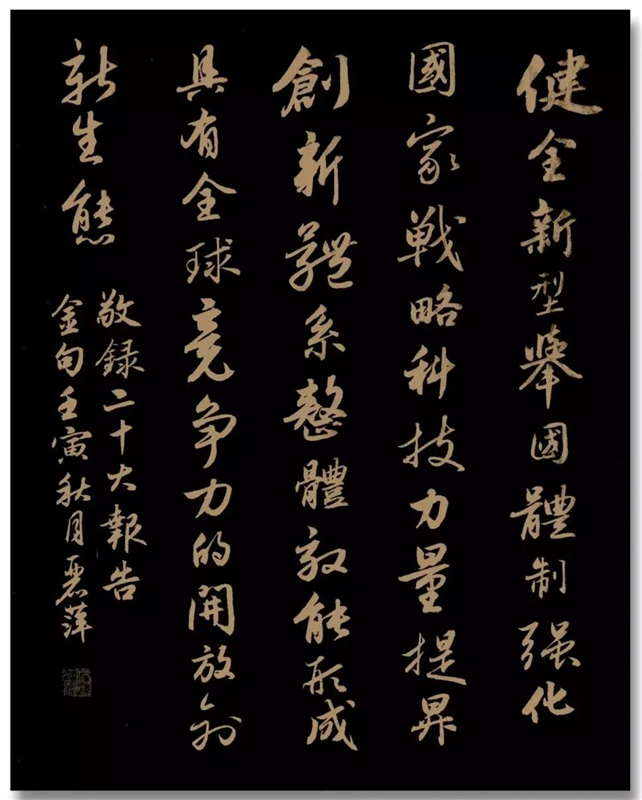 健全新型舉國體制强化
國家戦略科技力量提昇
創新體系整體效能形成
具有全球竞争力的開放創
新生態
敬録二十大報告
金句壬寅秋月麗萍